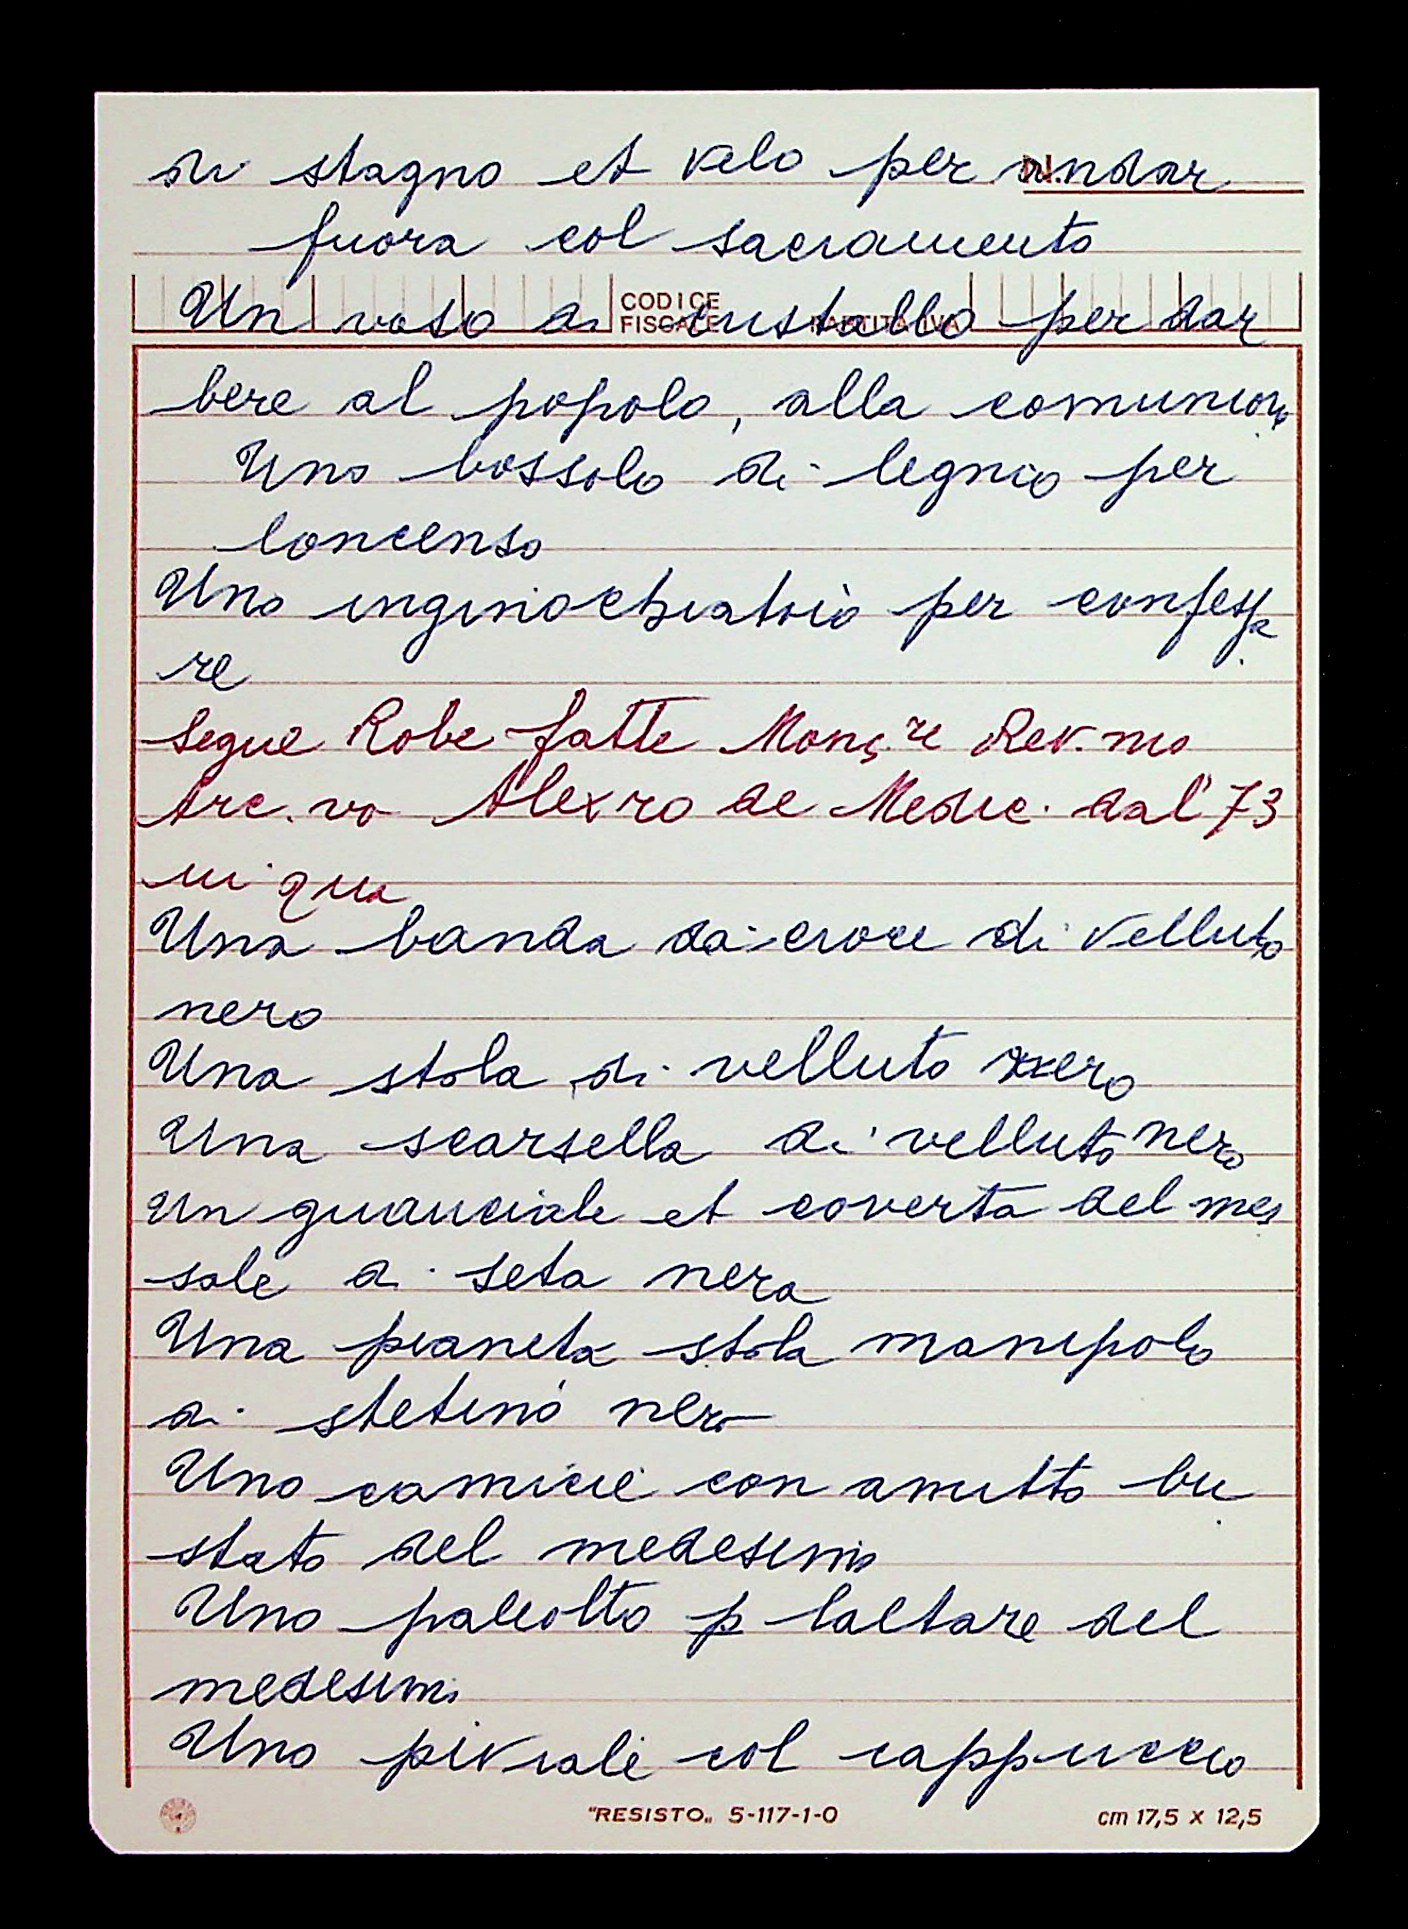 di stagno et velo per andar
N.
fuora col sacramento
CODICE
FISCALE PARTITA IVA
Un vaso di cristallo per dar
bere al popolo, alla comunione
Uno bossolo di legnio per
loncenso
Uno inginochiatoio per confessa
re
segue Robe fatte Monç.re Rev.mo
Arc.vo Alexro de Medic. dal' 73
in qua
Una banda da croce di velluto
nero
Una stola di velluto nero
Una scarsella di velluto nero
un guanciale et coverta del mes
sale di seta nera
Una pianeta stola manipolo
di nero
Uno camicie con amitto bu
stato del medesimo
Uno paleotto p laltare del
medesimi
Uno piviale col cappuccio
"RESISTO„ 5-117-1-0 cm 17,5 x 12,5